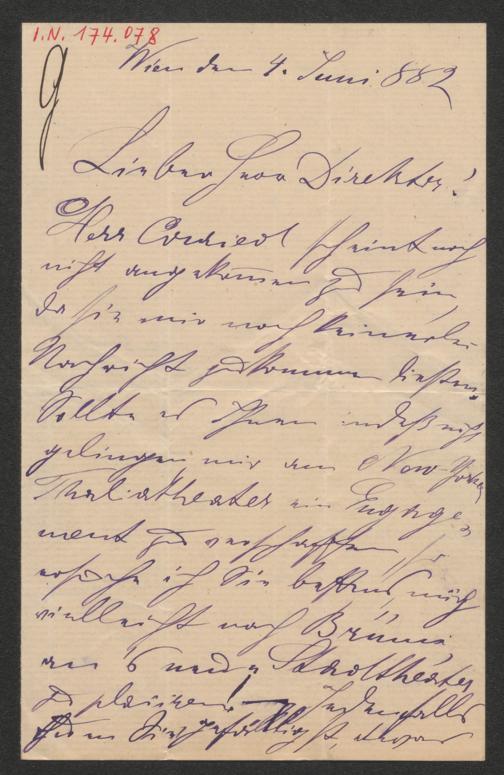 I.N. 174.078
Wien den 4. Juni 882
Lieber Herr Direktor!
Herr Conriedl scheint noch
nicht angekommen zu sein,
da Sie mir noch keinerlei
Nachricht zukommen ließen.
Sollte es Ihnen indeß nicht
gelingen mir am New-Yorker
Thaliatheater ein Engage-
ment zu verschaffen, so
ersuche ich Sie bestens, mich
vielleicht nach Brünn
an's neue Stadttheater
zu plaziren! — Jedenfalls
Sie gefälligst, etwas